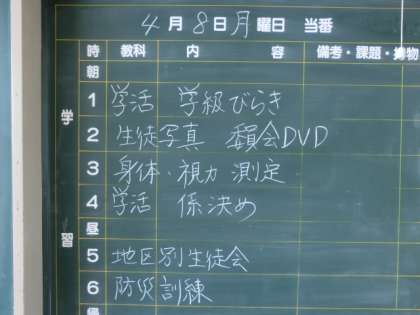 4月8日月曜日 当番
時 教科 内 容 備考・課題・持物
朝
1 学活 学級びらき
2 生徒写真 委員会DVD
3 身体・視力測定
4 学活 係決め
昼
5 地区別生徒会
6 防災訓練
学習